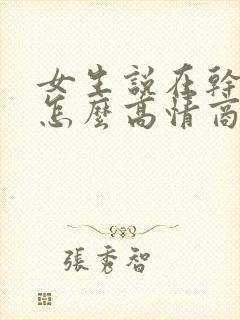 女生說在幹
怎麼高情商
張秀智